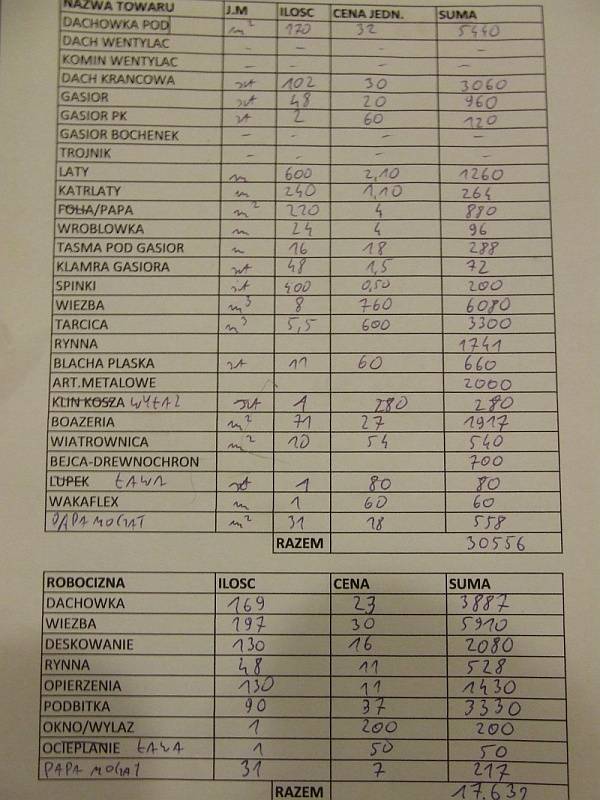 NAZWA TOWARU J.M ILOSC CENA JEDN. SUMA
DACHOWKA POD m² 170 32 5440
DACH WENTYLAC – – – –
KOMIN WENTYLAC – – – –
DACH KRANCOWA szt 102 30 3060
GASIOR szt 48 20 960
GASIOR PK szt 2 60 120
GASIOR BOCHENEK – – – –
TROJNIK – – – –
LATY m 600 2,10 1260
KATRLATY m 240 1,10 264
FOLIA/PAPA m² 220 4 880
WROBLOWKA m 24 4 96
TASMA POD GASIOR m 16 18 288
KLAMRA GASIORA szt 48 1,5 72
SPINKI szt 400 0,50 200
WIEZBA m³ 8 760 6080
TARCICA m³ 5,5 600 3300
RYNNA 1741
BLACHA PLASKA szt 11 60 660
ART.METALOWE 2000
KLIN KOSZA WYŁAZ szt 1 280 280
BOAZERIA m² 71 27 1917
WIATROWNICA m² 10 54 540
BEJCA-DREWNOCHRON 700
LUPEK ŁAWA szt 1 80 80
WAKAFLEX m 1 60 60
PAPA m² 31 18 558
RAZEM 30556
ROBOCIZNA ILOSC CENA SUMA
DACHOWKA 169 23 3887
WIEZBA 197 30 5910
DESKOWANIE 130 16 2080
RYNNA 48 11 528
OPIERZENIA 130 11 1430
PODBITKA 90 37 3330
OKNO/WYLAZ 1 200 200
OCIEPLANIE ŁAWA 1 50 50
PAPA 31 7 217
RAZEM 17.632